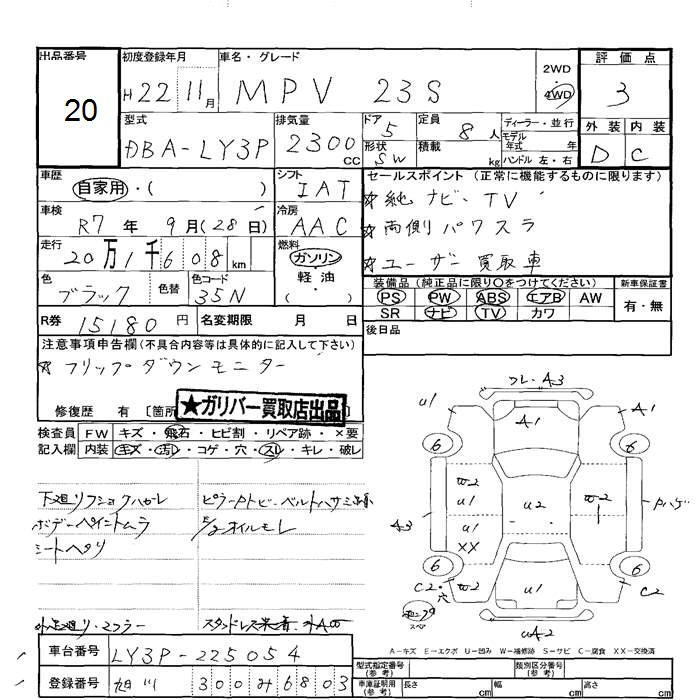 出品番号 初度登録年月 車名・グレード 2WD 評価点
20 H22 11月 MPV 23S 4WD 3
型式 排気量 ドア 5 定員 8人 ディーラー・並行 外装 内装
DBA-LY3P 2300cc 形状 SW 積載 kg モデル年式 年式 ハンドル 左・右 D C
車歴 自家用・( ) シフト IAT セールスポイント (正常に機能するものに限ります)
車検 R7年 9月(28日) 冷房 AAC ☆純ナビ・TV
☆両側パワスラ
走行 20万1千608km 燃料 ガソリン・軽油・( ) ☆ユーザー買取車
色 ブラック 色替 色コード 35N 装備品 (純正品に限り○をつけてください) 新車保証書
PS PW ABS エアB AW 有・無
SR ナビ TV カワ
R券 15180円 名変期限 月 日 後日品
注意事項申告欄(不具合内容等は具体的に記入して下さい)
☆フリップダウンモニター
修復歴 有 [箇所
★ガリバー買取店出品
検査員記入欄 FW キズ・飛石・ヒビ割・リペア跡・×要
内装 キズ・汚レ・コゲ・穴・スレ・キレ・破レ
下廻リフショクハガレ
ボデーペイントムラ
シートヘタリ
フレ・A3
U1 A1 A1
6 6
W2 U1 U2 W2 Pハゲ
A3 U1 XX
6 6
C2・穴 W2 U1 C2
スペア
UA2
A-キズ E-エクボ U-凹み W-補修跡 S-サビ C-腐食 XX-交換済
車台番号 LY3P-225054
登録番号 旭川 300 み 6803
型式指定番号(参考) 類別区分番号(参考)
車庫証明用(参考) 長さ cm 幅 cm 高さ cm